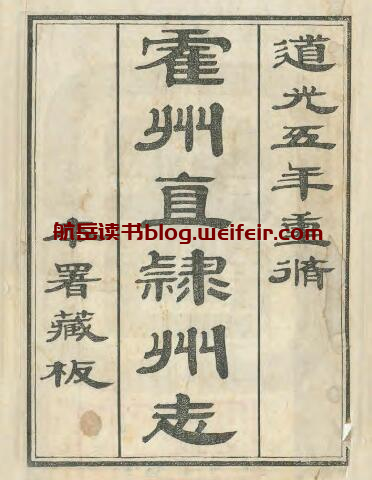 道光五年重脩
霍州直隸州志
本署藏板
航岳读书blog.weifeir.com